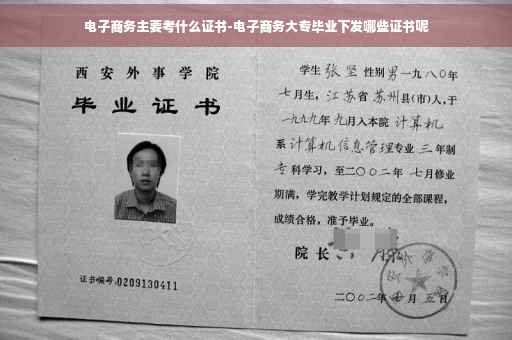 电子商务主要考什么证书-电子商务大专毕业下发哪些证书呢
西安外事学院
毕业证书
证书编号:0209130411
学生 张坚 性别 男 一九八〇年
七月生, 江苏省 苏州 县(市)人, 于
一九九九年 九月入本院 计算机
系 计算机信息管理 专业 三 年制
专科学习, 至二〇〇二年 七月修业
期满, 学完教学计划规定的全部课程,
成绩合格, 准予毕业。
院长
二〇〇二年 七月 五日